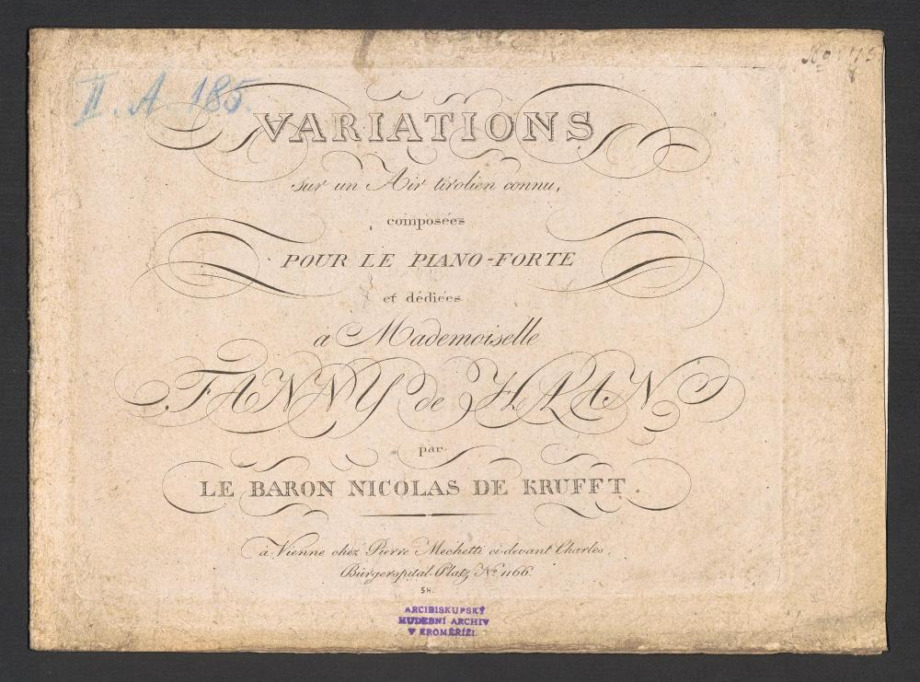 II. A 185.
VARIATIONS
sur un Air tirolien connu,
composées
POUR LE PIANO-FORTE
et dédiées
à Mademoiselle
FANNY de HAAN
par
LE BARON NICOLAS DE KRUFFT.
à Vienne chez Pierre Mechetti ci-devant Charles,
Bürgerspital-Platz No. 1166.
ARCIBISKUPSKÝ
HUDEBNÍ ARCHIV
V KROMĚŘÍŽI.